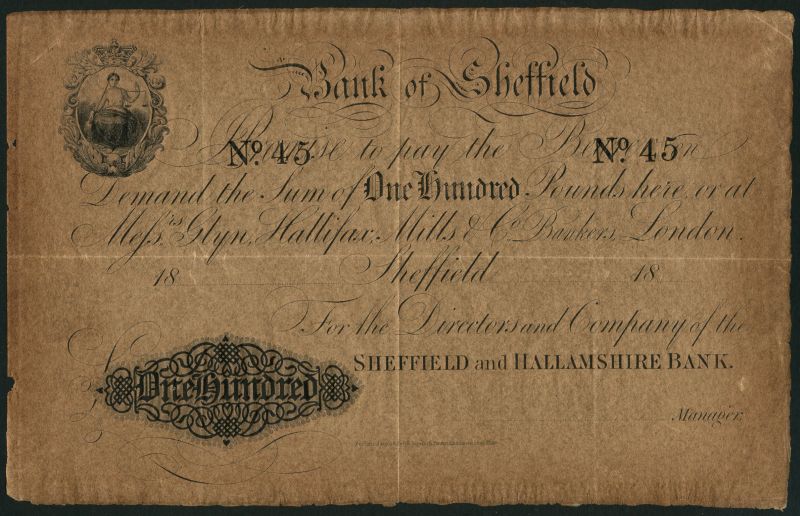 Bank of Sheffield
No. 45 No. 45
I Promise to pay the Bearer on
Demand the Sum of One Hundred Pounds here, or at
Messrs. Glyn, Hallifax, Mills & Co. Bankers, London.
18 Sheffield 18
For the Directors and Company of the
SHEFFIELD and HALLAMSHIRE BANK.
One Hundred
Manager.